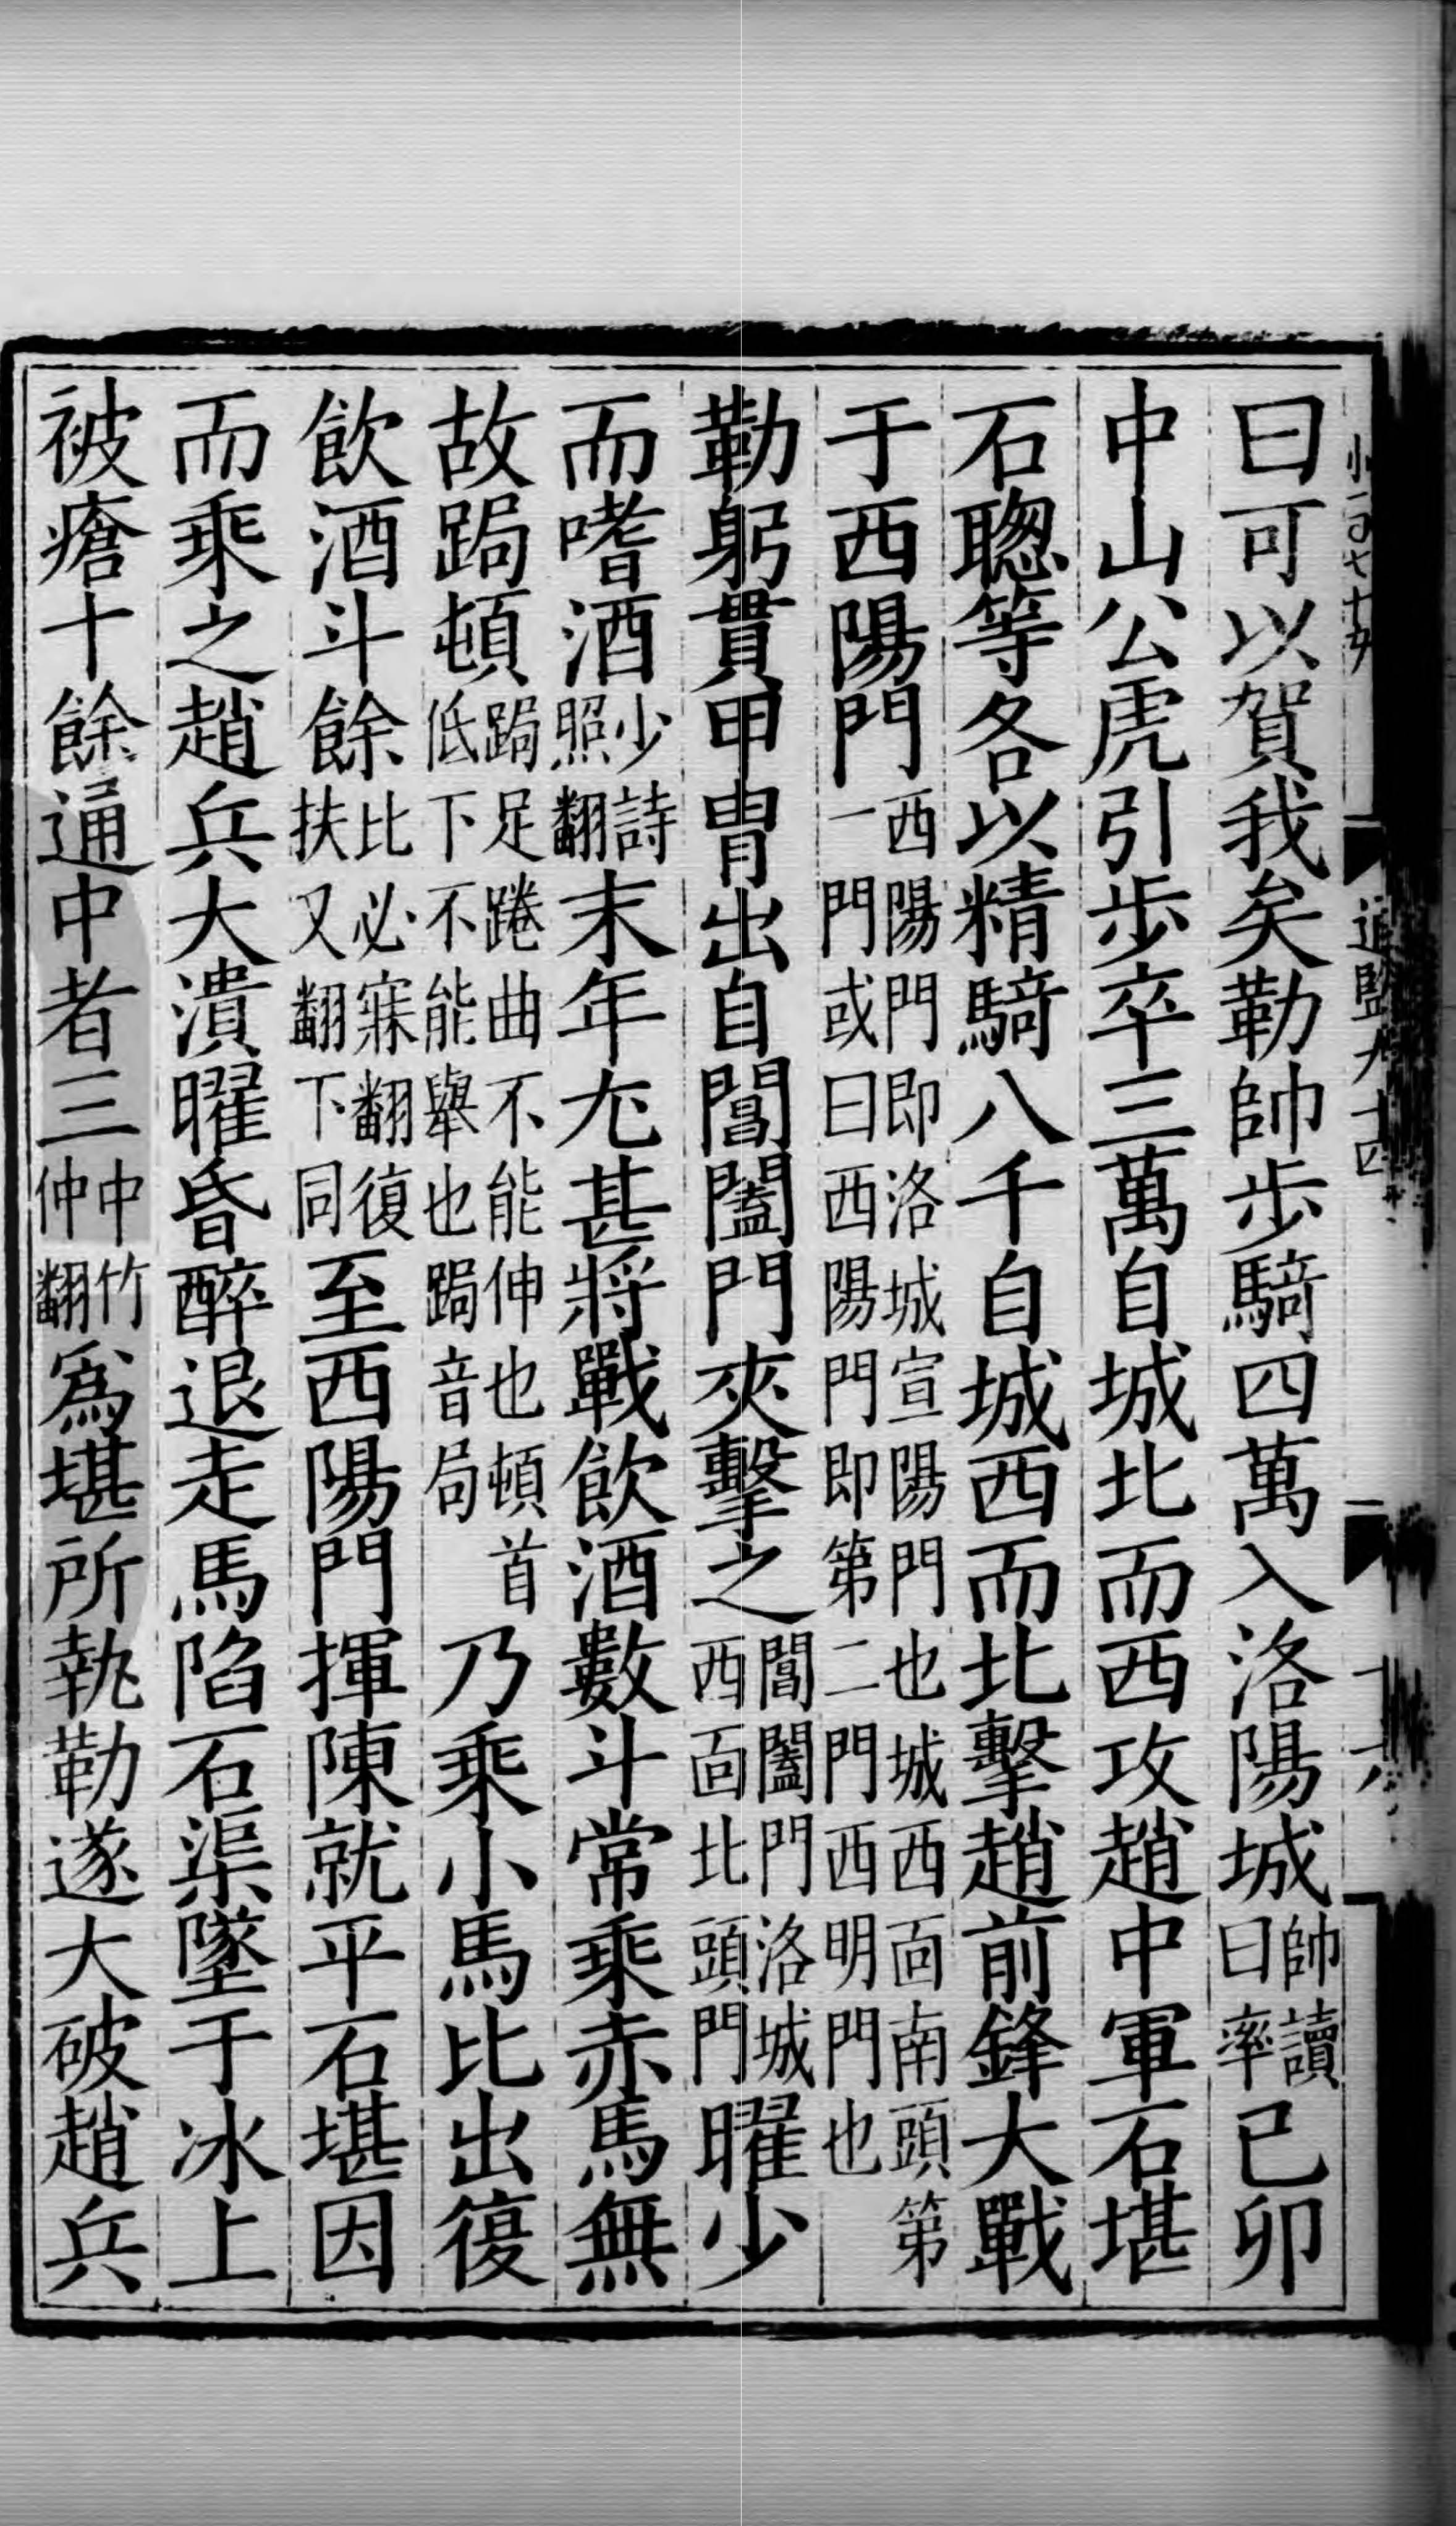 曰可以賀我矣勒帥步騎四萬入洛陽城帥讀曰率己卯
中山公虎引步卒三萬自城北而西攻趙中軍石堪
石聦等各以精騎八千自城西而北擊趙前鋒大戰
于西陽門西陽門即洛城宣陽門也城西面南頭第一門或曰西陽門即第二門西明門也
勒躬貫甲胄出自閶闔門夾擊之閶闔門洛城西面北頭門曜少
而嗜酒少詩照翻末年尤甚將戰飲酒數斗常乘赤馬無
故跼頓跼足踡曲不能伸也頓首低下不能舉也跼音局乃乘小馬比出復
飲酒斗餘比必寐翻復扶又翻下同至西陽門揮陳就平石堪因
而乘之趙兵大潰曜昏醉退走馬陷石渠墜于冰上
被瘡十餘通中者三中竹仲翻為堪所執勒遂大破趙兵
通鑑九十四